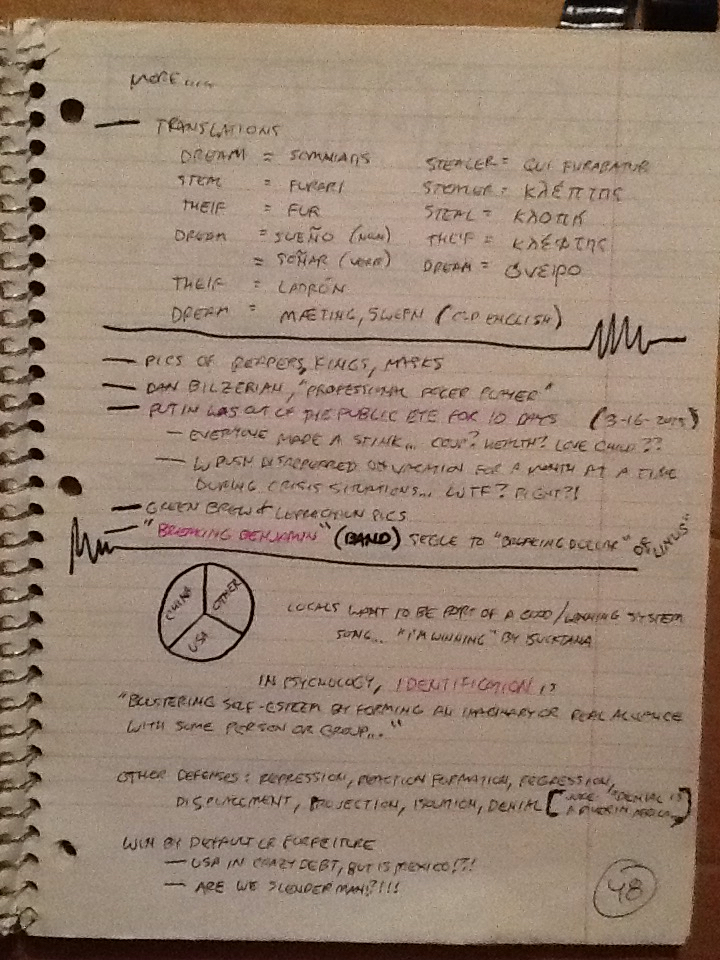 MORE....
— TRANSLATIONS
DREAM = SOMNIATIS
STEAL = FURARI
THEIF = FUR
DREAM = SUEÑO (NOUN)
= SOÑAR (VERB)
THEIF = LADRÓN
DREAM = MÆTING, SWEFN (OLD ENGLISH)
STEALER = QUI FURABATUR
STEALER = ΚλέπτΗς
STEAL = ΚλοπΗ
THEIF = ΚλέφτΗς
DREAM = όνειρο
— PICS OF REAPERS, KINGS, MASKS
— DAN BILZERIAN, "PROFESSIONAL POKER PLAYER"
— PUTIN WAS OUT OF THE PUBLIC EYE FOR 10 DAYS (3-16-2015)
— EVERYONE MADE A STINK... COUP? HEALTH? LOVE CHILD??
— W BUSH DISAPPEARED ON VACATION FOR A MONTH AT A TIME
DURING CRISIS SITUATIONS... WTF? RIGHT?!
— GREEN BREW & PICS
— "BREAKING BENJAMIN" (BAND) SEGUE TO "BREAKING DOLLAR" OF "LINUS"
CHINA
OTHER
USA
LOCALS WANT TO BE PART OF A GOOD/WINNING SYSTEM
SONG... "I'M WINNING" BY
IN PSYCHOLOGY, IDENTIFICATION IS
"BOLSTERING SELF-ESTEEM BY FORMING AN IMAGINARY OR REAL ALLIANCE
WITH SOME PERSON OR GROUP..."
OTHER DEFENSES: REPRESSION, REACTION FORMATION, REGRESSION,
DISPLACEMENT, PROJECTION, ISOLATION, DENIAL [JOKE: "DENIAL IS
A RIVER IN AFRICA"]
WIN BY DEFAULT OR FORFEITURE
— USA IN CRAZY DEBT, BUT IS MEXICO!?!
— ARE WE SLENDERMAN?!!!
48